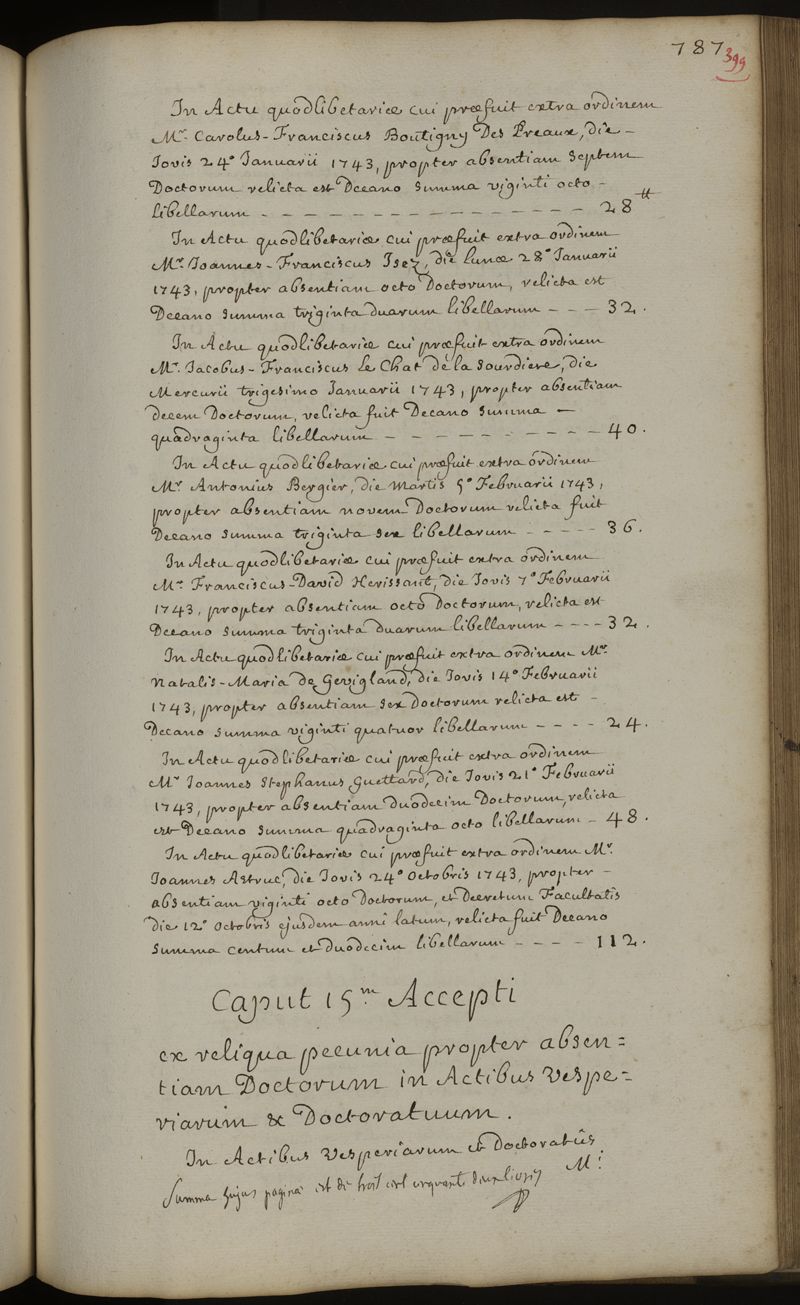 787
399
In Actu quodlibetariæ cui præfuit extra ordinem
Mr. Carolus-Franciscus Boutigny Des Preaux, die -
Jovis 24a Januarii 1743, propter absentiam septem
Doctorum relicta est Decano summa viginti octo -
libellarum - - - - - - - - - - - - - - - 28 tt
In Actu quodlibetariæ cui præfuit extra ordinem
Mr. Joannes-Franciscus Isez, die lunæ 28a Januarii
1743, propter absentiam octo Doctorum, relicta est
Decano summa triginta duarum libellarum - - - 32.
In Actu quodlibetariæ cui præfuit extra ordinem
Mr. Jacobus-Franciscus Le Chat de la Sourdiere, die
Mercurii trigesimo Januarii 1743, propter absentiam
decem Doctorum, relicta fuit Decano summa -
quadraginta libellarum - - - - - - - - - - 40.
In Actu quodlibetariæ cui præfuit extra ordinem
Mr. Antonius Bergier, die Martis 5a Februarii 1743,
propter absentiam novem Doctorum relicta fuit
Decano summa triginta sex libellarum - - - - - 36.
In Actu quodlibetariæ cui præfuit extra ordinem
Mr. Franciscus-David Herissant, die Jovis 7a Februarii
1743, propter absentiam octo Doctorum, relicta est
Decano summa triginta duarum libellarum - - - - 32.
In Actu quodlibetariæ cui præfuit extra ordinem Mr.
Natalis-Maria de Gevigland, die Jovis 14a Februarii
1743, propter absentiam sex Doctorum relicta est -
Decano summa viginti quatuor libellarum - - - - 24.
In Actu quodlibetariæ cui præfuit extra ordinem
Mr. Joannes Stephanus Guettard, die Jovis 21a Februarii
1743, propter absentiam duodecim Doctorum, relicta
est Decano summa quadraginta octo libellarum - 48.
In Actu quodlibetariæ cui præfuit extra ordinem Mr.
Joannes Astruc, die Jovis 24a Octobris 1743, propter -
absentiam viginti octo Doctorum, et Decretum Facultatis
die 12a Octobris ejusdem anni latum, relicta fuit Decano
summa centum et duodecim libellarum - - - - 112.
Caput 15m Accepti
ex reliqua pecunia propter absen=
tiam Doctorum in Actibus Vespe=
riarum & Doctoratuum.
In Actibus Vesperiarum et Doctoratûs
Mr.
Summa hujus paginæ est de trois cent cinquante deux livres